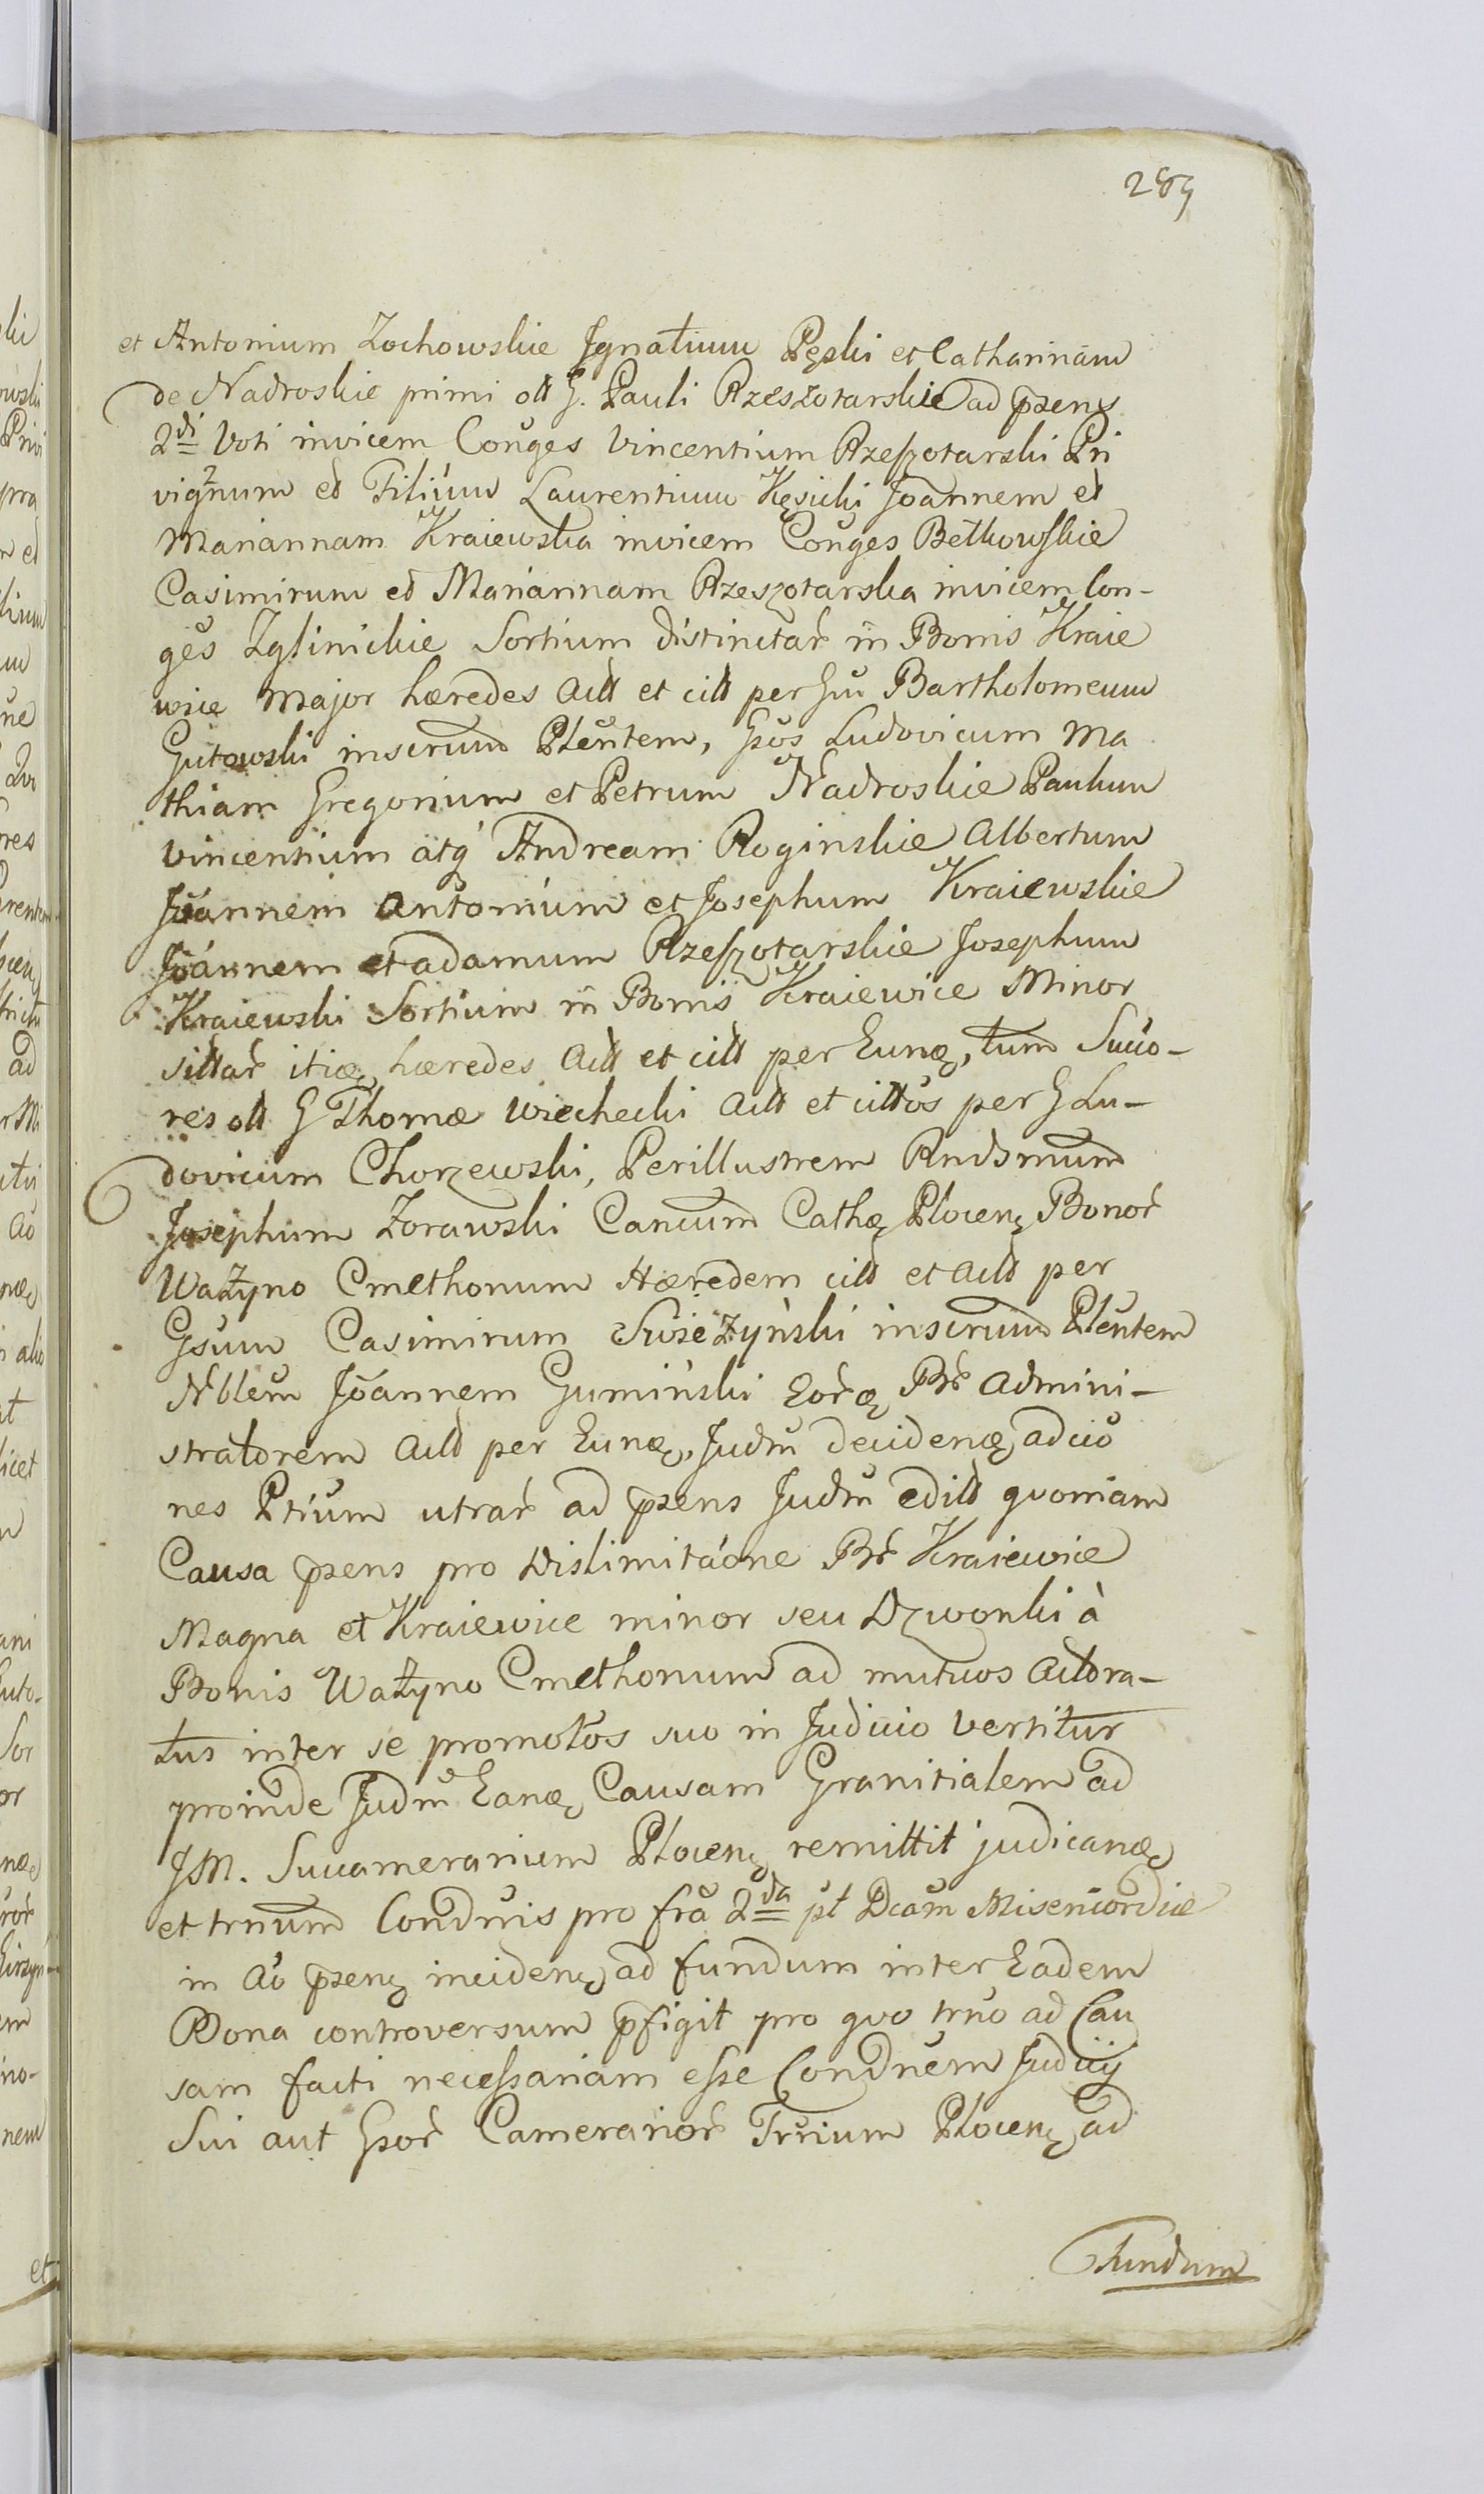 289
et Antonium Zochowskie Jgnatium Pęski et Catharinam
de Nadroskie primi olt G. Pauli Rzeszotarskie ad p̄zens
2di Voti invicem Conḡes Vincentium Rzeszotarski Pri
vignum et Filium Laurentium Kęsicki Joannem et
Mariannam Kraiewska invicem Conḡes Betkowskie
Casimirum et Mariannam Rzeszotarska invicem Con-
ḡes Zglinickie Sortium distinctar̃ in Bonis Kraie
wice Major hæredes Actt et citt per Gm̃ Bartholomeum
Gutowski inscrum Plen̄tem, Gsos Ludovicum Ma
thiam Gregorium et Petrum Nadroskie Paulum
Vincentium atq́ Andream Roginskie Albertum
Joannem Antonium et Josephum Kraiewskie
Joannem et adamum Rzeszotarskie Josephum
Kraiewski Sortium in Bonis Kraiewice Minor
sittar̃ itiæ hæredes Actt et citt per Eunæ, tum Succo-
res olt G Thomæ Wiechecki Actt et cittos per G Lu-
dovicum Chorzewski, Perillustrem Rndsmum
Josephum Zorawski Cancum Cathæ Plocen̨ Bonor̃
Ważyno Cmethonum Hæredem citt et Actt per
Gsum Casimirum Swieżyński inscrum Plen̄tem
Nblem Joannem Gumiński Eor̃æ Br̃ Admini-
stratorem Actt per Eunæ, Judm̃ decidenæ adcio
nes Ptium utrar̃ ad p̄zens Judm̃ editt quoniam
Causa p̄zens pro Dislimitaóne Br̃ Kraiewice
Magna et Kraiewice minor seu Dzwonki à
Bonis Ważyno Cmethonum ad mutuos Actora-
tus inter se promotos suo in Judicio Vertitur
proinde Judm̃ Eanæ Causam Granitialem ad
JM. Succamerarium Plocen̨ remittit judicanæ
et trnum Conduis pro fra 2da pt Dcam Misericordiæ
in Ao p̄zen̨ inciden̨ ad fundum inter Eadem
Bona controversum p̄figit pro quo trno ad Cau
sam facti necessariam esse Condnem Judicij
Sui aut Gsor̃ Camerarior̃ Trrium Plocen̨ ad
Fundum